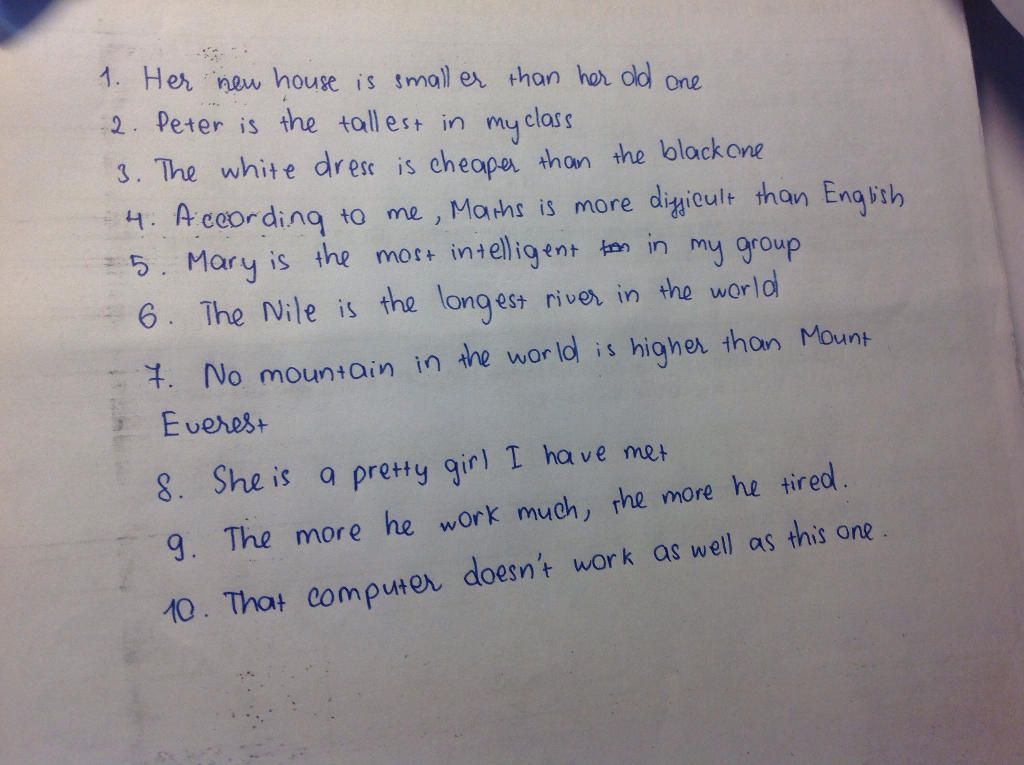 1. Her new house is smaller than her old one
2. Peter is the tallest in my class
3. The white dress is cheaper than the black one
4. According to me, Maths is more difficult than English
5. Mary is the most intelligent in my group
6. The Nile is the longest river in the world
7. No mountain in the world is higher than Mount
Everest
8. She is a pretty girl I have met
9. The more he work much, the more he tired.
10. That computer doesn't work as well as this one.